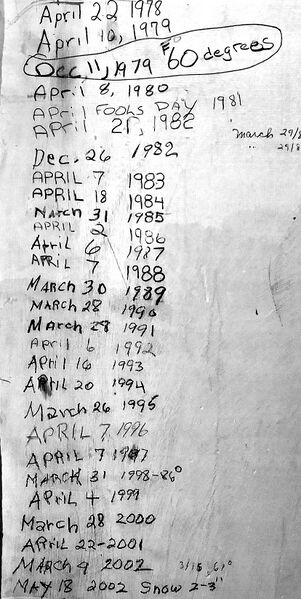 April 22 1978
April 10, 1979
Dec, 11, 1979 60 degrees
April 8, 1980
April FOOLS DAY 1981
April 21, 1982
March 29/8
" 29/8
Dec. 26 1982
APRIL 7 1983
APRIL 18 1984
March 31 1985
APRIL 2 1986
April 6 1987
APRIL 7 1988
March 30 1989
MARCH 28 1990
March 28 1991
April 6 1992
April 16 1993
April 20 1994
March 26 1995
APRIL 7 1996
APRIL 7 1997
MARCH 31 1998-86°
APRIL 4 1999
March 28 2000
APRIL 22-2001
MARCH 9 2002 3/15, 61°
MAY 18 2002 Snow 2-3"